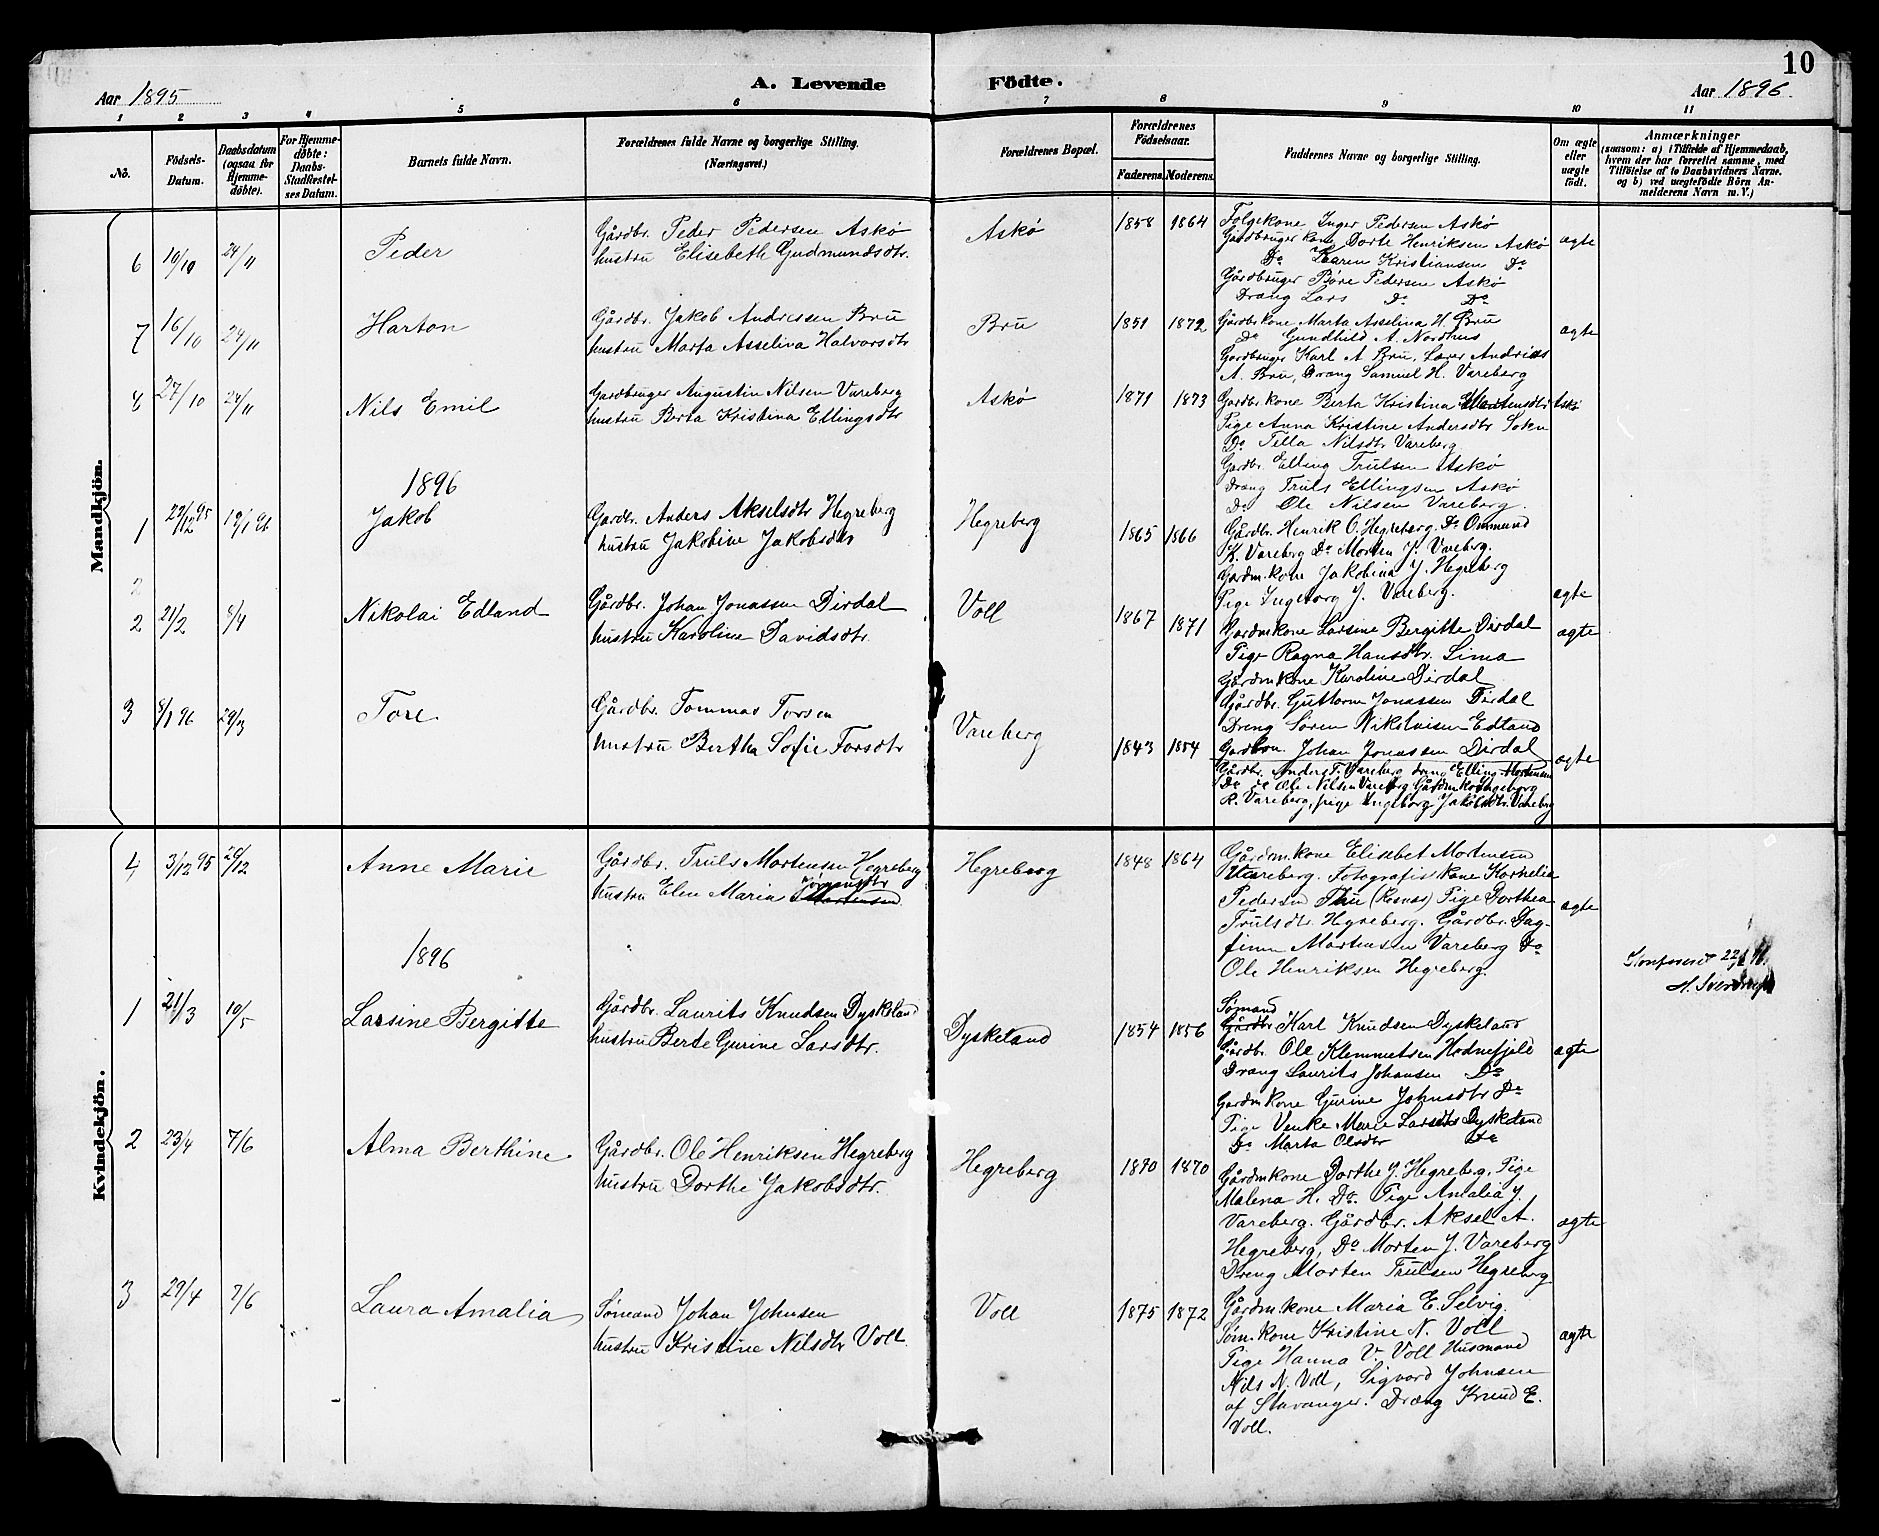 10
Aar 1895
A. Levende Födte.
Aar 1896.
1 2 3 4 5 6 7 8 9 10 11
No.
Födsels-Datum.
Daabsdatum (ogsaa for Hjemme-døbte).
For Hjemme-døbte: Daabs-Stadfæstel-ses Datum.
Barnets fulde Navn.
Forældrenes fulde Navne og borgerlige Stilling. (Næringsvei.)
Forældrenes Bopæl.
Forældrenes Födselsaar.
Faderens. Moderens.
Faddernes Navne og borgerlige Stilling.
Om ægte eller uægte født.
Anmærkninger
(saasom: a) i Tilfælde af Hjemmedaab,
hvem der har forrettet samme, med
Tilföielse af to Daabsvidners Navne.
og b) ved uægtefödte Börn An-
melderens Navn m. V.)
Mandkjön.
6 10/10 24/11 Peder
Gårdbr. Peder Pedersen Askø
hustru Elisebeth Gudmundsdtr.
Askø 1858 1864
Følgekone Inger Pedersen Askø
Gårdbruger kone Dorte Henriksen Askø
Do Karen Kristiansen Do
Gårdbruger Böre Pedersen Askø
Dræng Lars Do Do
agte
7 16/10 24/11 Harton
Gårdbr. Jakob Andresen Bru
hustru Marta Asselina Halvorsdtr
Bru 1851 1872
Gårdbr kone Marta Asselina H. Bru
Do Gundhild A. Nordhus
Gårdbruger Karl A Bru, Lærer Andrias
A. Bru, Dræng Samuel H. Vareberg
agte
8 27/10 24/11 Nils Emil
Gardbruger Augustin Nilsen Vareberg
hustru Berta Kristina Ellingsdtr
Askø 1871 1873
Gårdbr kone Berta Kristina Askø
Pige Anna Kristine Andersdtr Sokn
Do Tella Nilsdtr Vareberg
Gårdbr. Elling Trulsen Askø
Dræng Truls Ellingsen Askø
Do Ole Nilsen Vareberg.
1896
1 29/12 95 19/1 96 Jakob
Gardbr. Anders Akselsdtr Hegreberg
hustru Jakobine Jakobsdtr
Hegreberg 1865 1866
Gårdbr. Henrik O. Hegreberg. Do Ommund
K. Vareberg Do Morten J. Vareberg.
Gardm. kone Jakobina J. Hegreberg
Pige Ingeborg J. Vareberg.
agte
2
2 21/2 8/4 Nikolai Edland
Gårdbr. Johan Jonassen Dirdal
hustru Karoline Davidsdtr.
Voll 1867 1871
Gardmkone Larsine Bergitte Dirdal
Pige Ragna Hansdtr. Lima
Gårdmkone Karoline Dirdal
Gårdbr. Guttorm Jonassen Dirdal
Dreng Søren Nikolaisen Edland
Johan Jonassen Dirdal
agte
3 8/1 96 29/3 Tore
Gårdbr. Tommas Torsen
hustru Bertha Sofie Torsdtr
Vareberg 1843 1854
Gårdbr. Anders T. Vareberg dreng Elling Mortensen
Do do Ole Nilsen Vareberg Gårdmkone Ingeborg
R. Vareberg, pige Ingeborg Jakobsdtr. Vareberg
agte
Kvindekjön.
4 3/12 95 26/12 Anne Marie
Gårdbr. Truls Mortensen Hegreberg
hustru Elen Maria Jörgensdtr
Mortensen
Hegreberg 1848 1864
Gårdm. kone Elisebet Mortensen
Vareberg. Fotografist kone Kornelia
Pedersen Thu (Rosnes) Pige Dorthea
Trulsdtr. Hegreberg. Gårdbr. Dag-
finn Mortensen Vareberg Do
Ole Henriksen Hegreberg.
agte
22/6 96.
1896
1 21/3 10/5 Larsine Bergitte
Gårdbr. Laurits Knudsen Dyskeland
hustru Berte Gurine Larsdtr.
Dyskeland 1854 1856
Sømand
Gårdbr Karl Knudsen Dyskeland
Gårdbr. Ole Klemmetsen Hodnefjeld
Dræng Laurits Johansen Do
Gardm kone Gurine Johnsdtr Do
Pige Venke Marie Larsdtr Dyskeland
Do Marta Olsdtr Do
agte
2 23/4 7/6 Alma Berthine
Gårdbr. Ole Henriksen Hegreberg
hustru Dorthe Jakobsdtr.
Hegreberg 1870 1870
Gårdmkone Dorthe J. Hegreberg. Pige
Malena H. Do. Pige Amalia J.
Vareberg. Gårdbr. Aksel A.
Hegreberg, Do Morten J. Vareberg
Dreng Morten Trulsen Hegreberg
agte
3 29/4 7/6 Laura Amalia
Sømand Johan Johnsen
hustru Kristine Nilsdtr Voll
Voll 1875 1872
Gårdm. kone Maria E. Selvig.
Søm. kone Kristine N. Voll
Pige Hanna V. Voll Husmand
Nils N. Voll, Sigvard Johnsen
af Stavanger. Dræng Knud E.
Voll.
agte